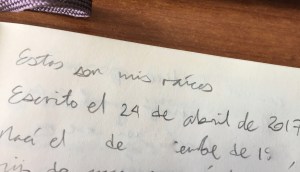 Estas son mis raíces
Escrito el 24 de abril de 2017
Nací el de de 19